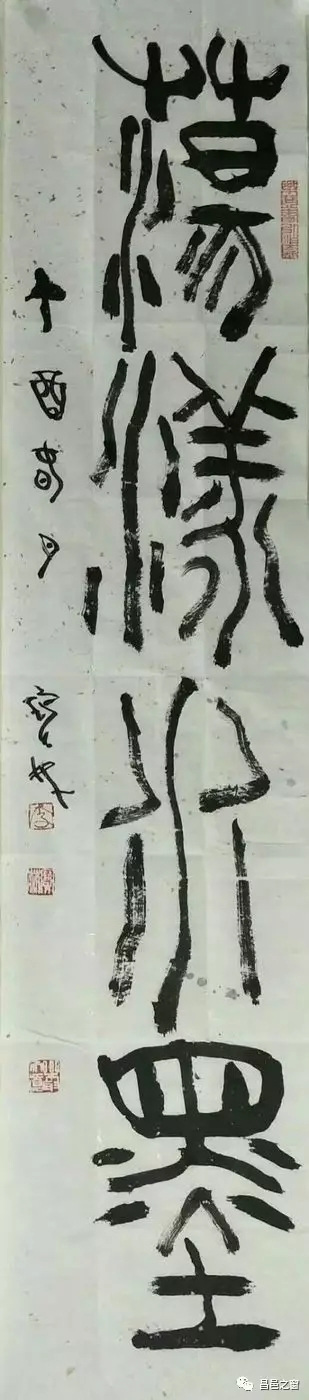 蕩漾水墨
丁酉春月
昌邑之窗